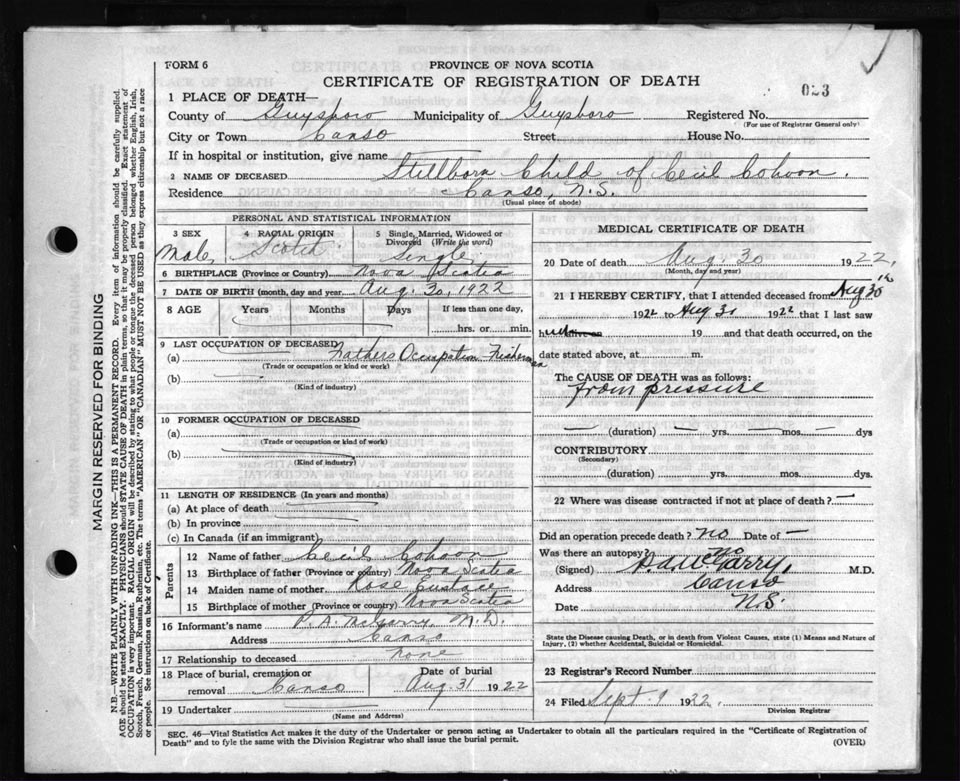 FORM 6
PROVINCE OF NOVA SCOTIA
CERTIFICATE OF REGISTRATION OF DEATH
023
1 PLACE OF DEATH—
County of Guysboro Municipality of Guysboro Registered No.
(For use of Registrar General only)
City or Town Canso Street House No.
If in hospital or institution, give name
2 NAME OF DECEASED Stillborn Child of Cecil Cohoon.
Residence Canso, N.S.
(Usual place of abode)
PERSONAL AND STATISTICAL INFORMATION
3 SEX Male, 4 RACIAL ORIGIN Scotch 5 Single, Married, Widowed or Divorced (Write the word) Single,
6 BIRTHPLACE (Province or Country) Nova Scotia
7 DATE OF BIRTH (month, day and year) Aug. 30, 1922
8 AGE Years Months Days If less than one day,
hrs. or min.
9 LAST OCCUPATION OF DECEASED
(a) Fathers Occupation Fisherman
(Trade or occupation or kind or work)
(b)
(Kind of industry)
10 FORMER OCCUPATION OF DECEASED
(a)
(Trade or occupation or kind of work)
(b)
(Kind of industry)
11 LENGTH OF RESIDENCE (In years and months)
(a) At place of death
(b) In province
(c) In Canada (if an immigrant)
Parents
12 Name of father Cecil Cohoon
13 Birthplace of father (Province or country) Nova Scotia
14 Maiden name of mother Rose Eustace
15 Birthplace of mother (Province or country) Nova Scotia
16 Informant's name P. A. McGarry, M.D.
Address Canso
17 Relationship to deceased none
18 Place of burial, cremation or removal Canso Date of burial Aug. 31 1922
19 Undertaker
(Name and Address)
MEDICAL CERTIFICATE OF DEATH
20 Date of death Aug. 30 1922,
(Month, day and year)
21 I HEREBY CERTIFY, that I attended deceased from Aug 30th
1922 to Aug 31 1922 that I last saw
h 19 and that death occurred, on the
date stated above, at m.
The CAUSE OF DEATH was as follows:
from pressure
(duration) yrs. mos. dys
CONTRIBUTORY
(Secondary)
(duration) yrs. mos. dys.
22 Where was disease contracted if not at place of death? —
Did an operation precede death? no Date of —
Was there an autopsy? no
(Signed) McGarry, M.D.
Address Canso
Date N.S.
State the Disease causing Death, or in death from Violent Causes, state (1) Means and Nature of
Injury, (2) whether Accidental, Suicidal or Homicidal.
23 Registrar's Record Number
24 Filed Sept. 9 1922.
Division Registrar
SEC. 46—Vital Statistics Act makes it the duty of the Undertaker or person acting as Undertaker to obtain all the particulars required in the "Certificate of Registration of
Death" and to fyle the same with the Division Registrar who shall issue the burial permit.
(OVER)
MARGIN RESERVED FOR BINDING
N.B.—WRITE PLAINLY WITH UNFADING INK—THIS IS A PERMANENT RECORD. Every item of information should be carefully supplied.
AGE should be stated EXACTLY. PHYSICIANS should STATE CAUSE OF DEATH in plain terms, so that it may be properly classified. Exact statement of
OCCUPATION is very important. RACIAL ORIGIN will be described by stating to what people or tongue the deceased person belonged whether English, Irish,
Scotch, French, German, Russian, Ruthenian, etc. The terms "AMERICAN" OR "CANADIAN" MUST NOT BE USED as they express citizenship but not a race
or people. See instructions on back of Certificate.